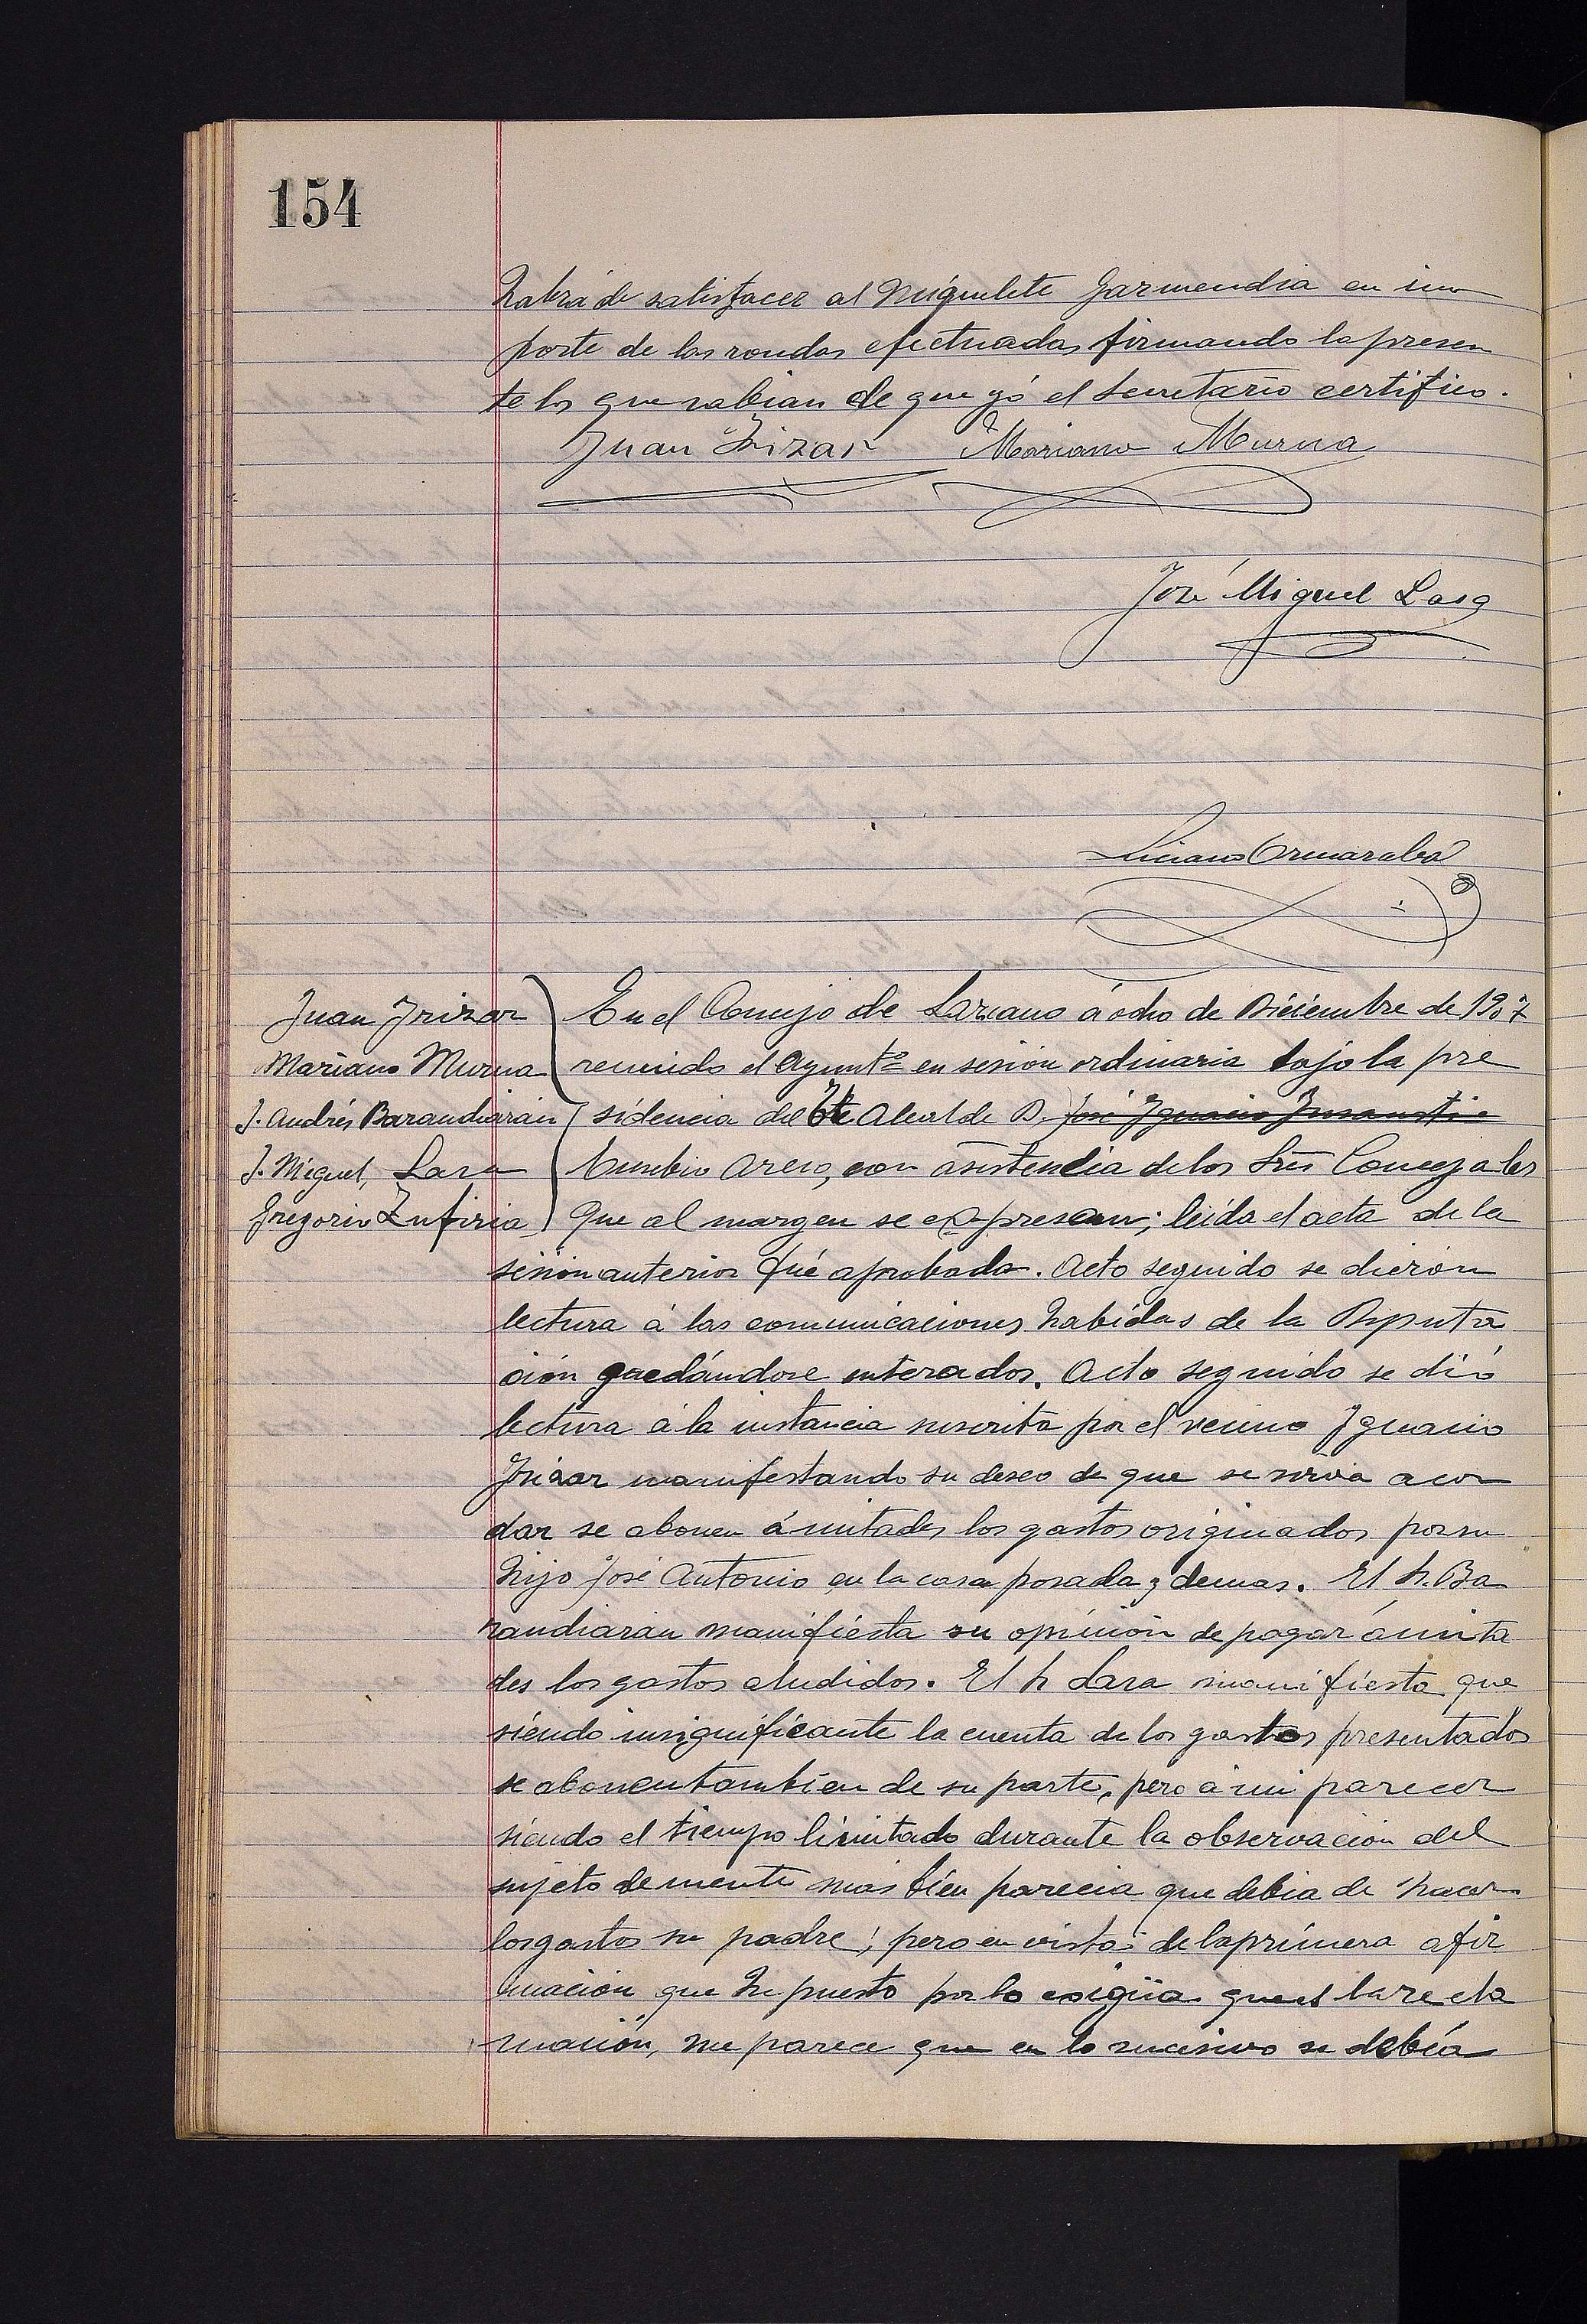 154
habra de satisfacer al Miguelete Garmendia en im
porte de las rondas efectuadas firmando la presen
te los que sabian de que yó el Secretario certifico.
Juan Irizar Mariano Murua
José Miguel Lasa
Liciano Ormazabal
Juan Irizar
Mariano Murua
J. Andrés Barandiarán
J. Miguel, Lasa
Gregorio Zufiria
En el Concejo de Lazcano á ocho de Diciembre de 1907
reunido el Ayunt.º en sesión ordinaria bajo la pre
sidencia del Tte Alcalde D. José Ignacio Insausti
Eusebio Areso, con asistencia de los Sres Concejales
que al margen se expresan; leida el acta de la
sesión anterior fué aprobada. Acto seguido se dieron
lectura á las comunicaciones habidas de la Diputa
ción quedándose enterados. Acto seguido se dió
lectura á la instancia suscrita por el vecino Ignacio
Irizar manifestando su deseo de que se sirva acor
dar se abonen á mitades los gastos originados por su
hijo José Antonio en la casa posada y demas. El Sr. Ba
randiaran manifiesta su opinión de pagar á mita
des los gastos aludidos. El Sr Lasa manifiesta que
siendo insignificante la cuenta de los gastos presentados
se abonen tambien de su parte, pero á mi parecer
siendo el tiempo limitado durante la observación del
sujeto demente mas bien parecia que debia de hacer
los gastos su padre; pero en vista de la primera afir
mación que he puesto por lo exigüa que es la recla
mación, me parece que en lo sucesivo se debía